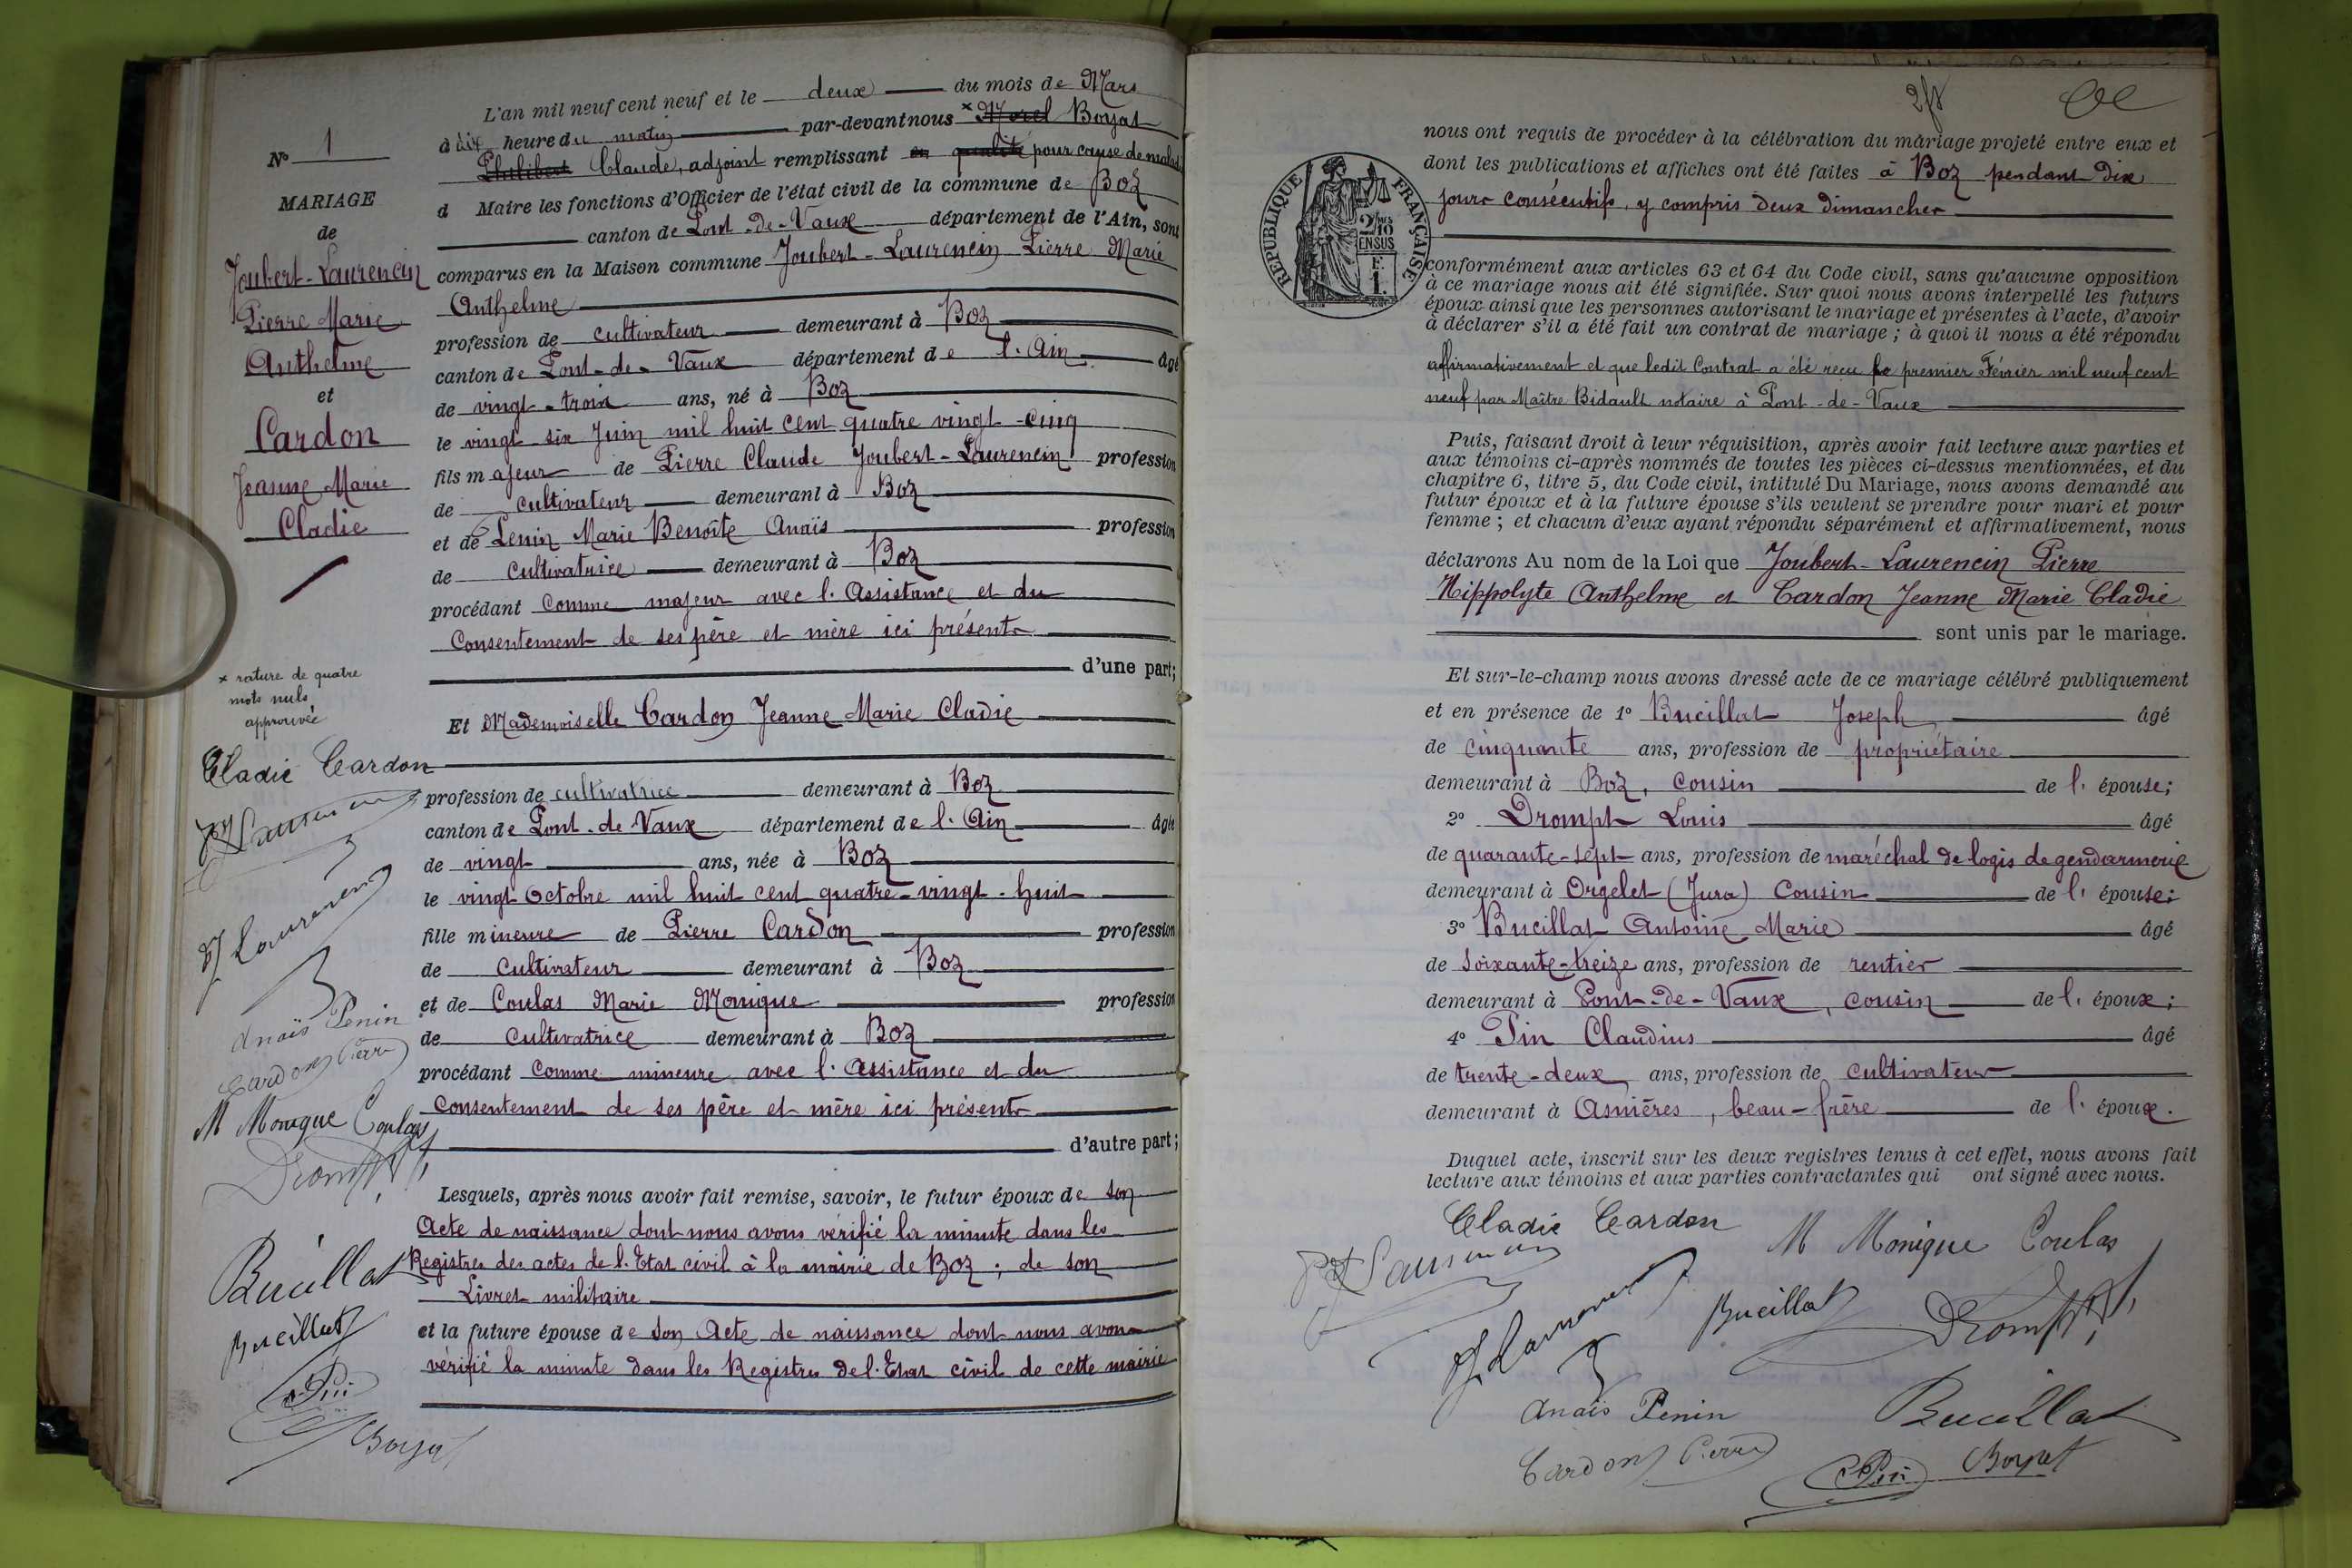 N° 1
MARIAGE
de
Joubert-Laurencin
Pierre Marie
Anthelme
et
Cardon
Jeanne Marie
Cladie
× rature de quatre
mots nuls
approuvée
Cladie Cardon
Laurencin
J Laurencin
Anaïs Penin
Cardon Pierre
M Monique Coulas
Drompt
Bucillat
Bucillat
Pin
Boyat
L'an mil neuf cent neuf et le deux du mois de Mars
à dix heure du matin par-devant nous × Morel Boyat
Philibert Claude, adjoint remplissant en qualité pour cause de malad
d Maire les fonctions d'Officier de l'état civil de la commune de Boz
canton de Pont-de-Vaux département de l'Ain, sont
comparus en la Maison commune Joubert-Laurencin Pierre Marie
Anthelme
profession de cultivateur demeurant à Boz
canton de Pont-de-Vaux département de l'Ain âgé
de vingt-trois ans, né à Boz
le vingt six Juin mil huit cent quatre vingt-cinq
fils majeur de Pierre Claude Joubert-Laurencin profession
de cultivateur demeurant à Boz
et de Penin Marie Benoîte Anaïs profession
de cultivatrice demeurant à Boz
procédant comme majeur avec l'Assistance et du
Consentement de ses père et mère ici présents
d'une part;
Et Mademoiselle Cardon Jeanne Marie Cladie
profession de cultivatrice demeurant à Boz
canton de Pont-de-Vaux département de l'Ain âgée
de vingt ans, née à Boz
le vingt Octobre mil huit cent quatre-vingt-huit
fille mineure de Pierre Cardon profession
de cultivateur demeurant à Boz
et de Coulas Marie Monique profession
de cultivatrice demeurant à Boz
procédant comme mineure avec l'Assistance et du
consentement de ses père et mère ici présents
d'autre part;
Lesquels, après nous avoir fait remise, savoir, le futur époux de son
Acte de naissance dont nous avons vérifié la minute dans les
Registres des actes de l'Etat civil à la mairie de Boz; de son
Livret militaire
et la future épouse de son Acte de naissance dont nous avons
vérifié la minute dans les Registres de l'Etat civil de cette mairie
RÉPUBLIQUE FRANÇAISE
2/10
EN SUS
F.
1.
nous ont requis de procéder à la célébration du mariage projeté entre eux et
dont les publications et affiches ont été faites à Boz pendant dix
jours consécutifs, y compris deux dimanches
conformément aux articles 63 et 64 du Code civil, sans qu'aucune opposition
à ce mariage nous ait été signifiée. Sur quoi nous avons interpellé les futurs
époux ainsi que les personnes autorisant le mariage et présentes à l'acte, d'avoir
à déclarer s'il a été fait un contrat de mariage; à quoi il nous a été répondu
affirmativement et que ledit Contrat a été reçu le premier Février mil neuf cent
neuf par Maître Bidault notaire à Pont-de-Vaux
Puis, faisant droit à leur réquisition, après avoir fait lecture aux parties et
aux témoins ci-après nommés de toutes les pièces ci-dessus mentionnées, et du
chapitre 6, titre 5, du Code civil, intitulé Du Mariage, nous avons demandé au
futur époux et à la future épouse s'ils veulent se prendre pour mari et pour
femme; et chacun d'eux ayant répondu séparément et affirmativement, nous
déclarons Au nom de la Loi que Joubert-Laurencin Pierre
Hippolyte Anthelme et Cardon Jeanne Marie Cladie
sont unis par le mariage.
Et sur-le-champ nous avons dressé acte de ce mariage célébré publiquement
et en présence de 1° Bucillat Joseph âgé
de cinquante ans, profession de propriétaire
demeurant à Boz, cousin de l'épouse;
2° Drompt Louis âgé
de quarante-sept ans, profession de maréchal de logis de gendarmerie
demeurant à Orgelet (Jura) cousin de l'épouse;
3° Bucillat Antoine Marie âgé
de soixante-treize ans, profession de rentier
demeurant à Pont-de-Vaux, cousin de l'époux;
4° Pin Claudius âgé
de trente-deux ans, profession de cultivateur
demeurant à Asnières, beau-frère de l'époux.
Duquel acte, inscrit sur les deux registres tenus à cet effet, nous avons fait
lecture aux témoins et aux parties contractantes qui ont signé avec nous.
Cladie Cardon
M Monique Coulas
Laurencin
J Laurencin
Bucillat
Drompt
Anaïs Penin
Bucillat
Cardon Pierre
Pin
Boyat